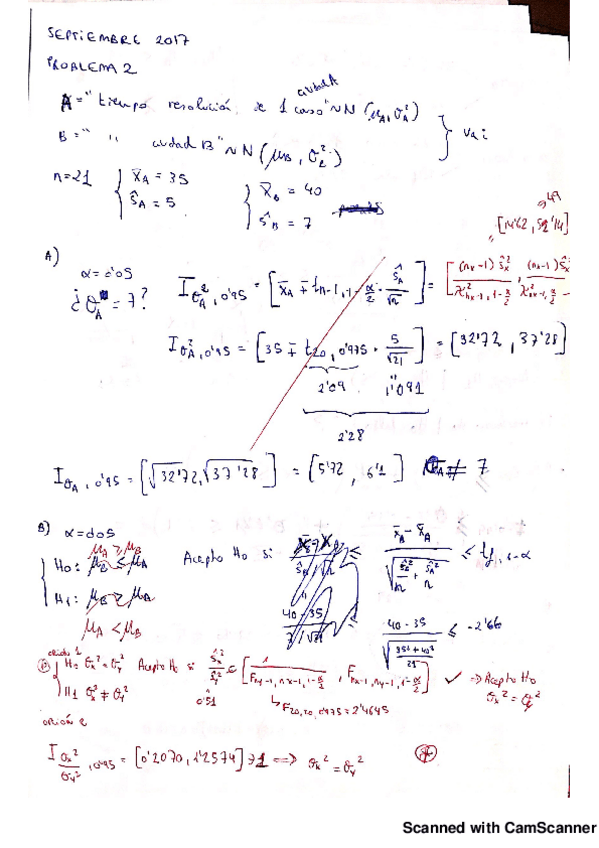 SEPTIEMBRE 2017
PROBLEMA 2
A = "tiempo resolución de 1 caso ciudad A" ~ N(μA, σA²)
B = " " ciudad B" ~ N(μB, σB²) } v.a.i
n=21 { x̄A = 35 { x̄B = 40
ŝA = 5 ŝB = 7
A)
α = 0'05
¿σA = 7?
I σA², 0'95 = [x̄A ∓ t n-1, 1-α/2 · ŝA/√n] = [(nx-1)ŝx²/χ² nx-1, 1-α/2, (nx-1)ŝx²/χ² nx-1, α/2]
= [14'62, 52'14]
I σA², 0'95 = [35 ∓ t20, 0'975 · 5/√21] = [32'72, 37'28]
2'09 1'091
2'28
I σA, 0'95 = [√32'72, √37'28] = [5'72, 6'1] σA ≠ 7
B) α = 0'05
μA ≥ μB
H0: μB ≤ μA Acepto H0 si
H1: μB > μA
μA < μB
40 - 35
7/√21
≤ tf, 1-α
40 - 35 ≤ -2'66
35² + 40²
21
opción 1
{ H0 σx² = σy² Acepto H0 si ŝx²/ŝy² ∈ [1/F ny-1, nx-1, 1-α/2, F nx-1, ny-1, 1-α/2] ✓ ⇒ Acepto H0
H1 σx² ≠ σy² 0'51 ↳ F20, 20, 0'975 = 2'4645 σx² = σy²
opción 2
I σx²/σy², 0'95 = [0'2070, 1'2574] ∋ 1 ⇒ σx² = σy²
Scanned with CamScanner